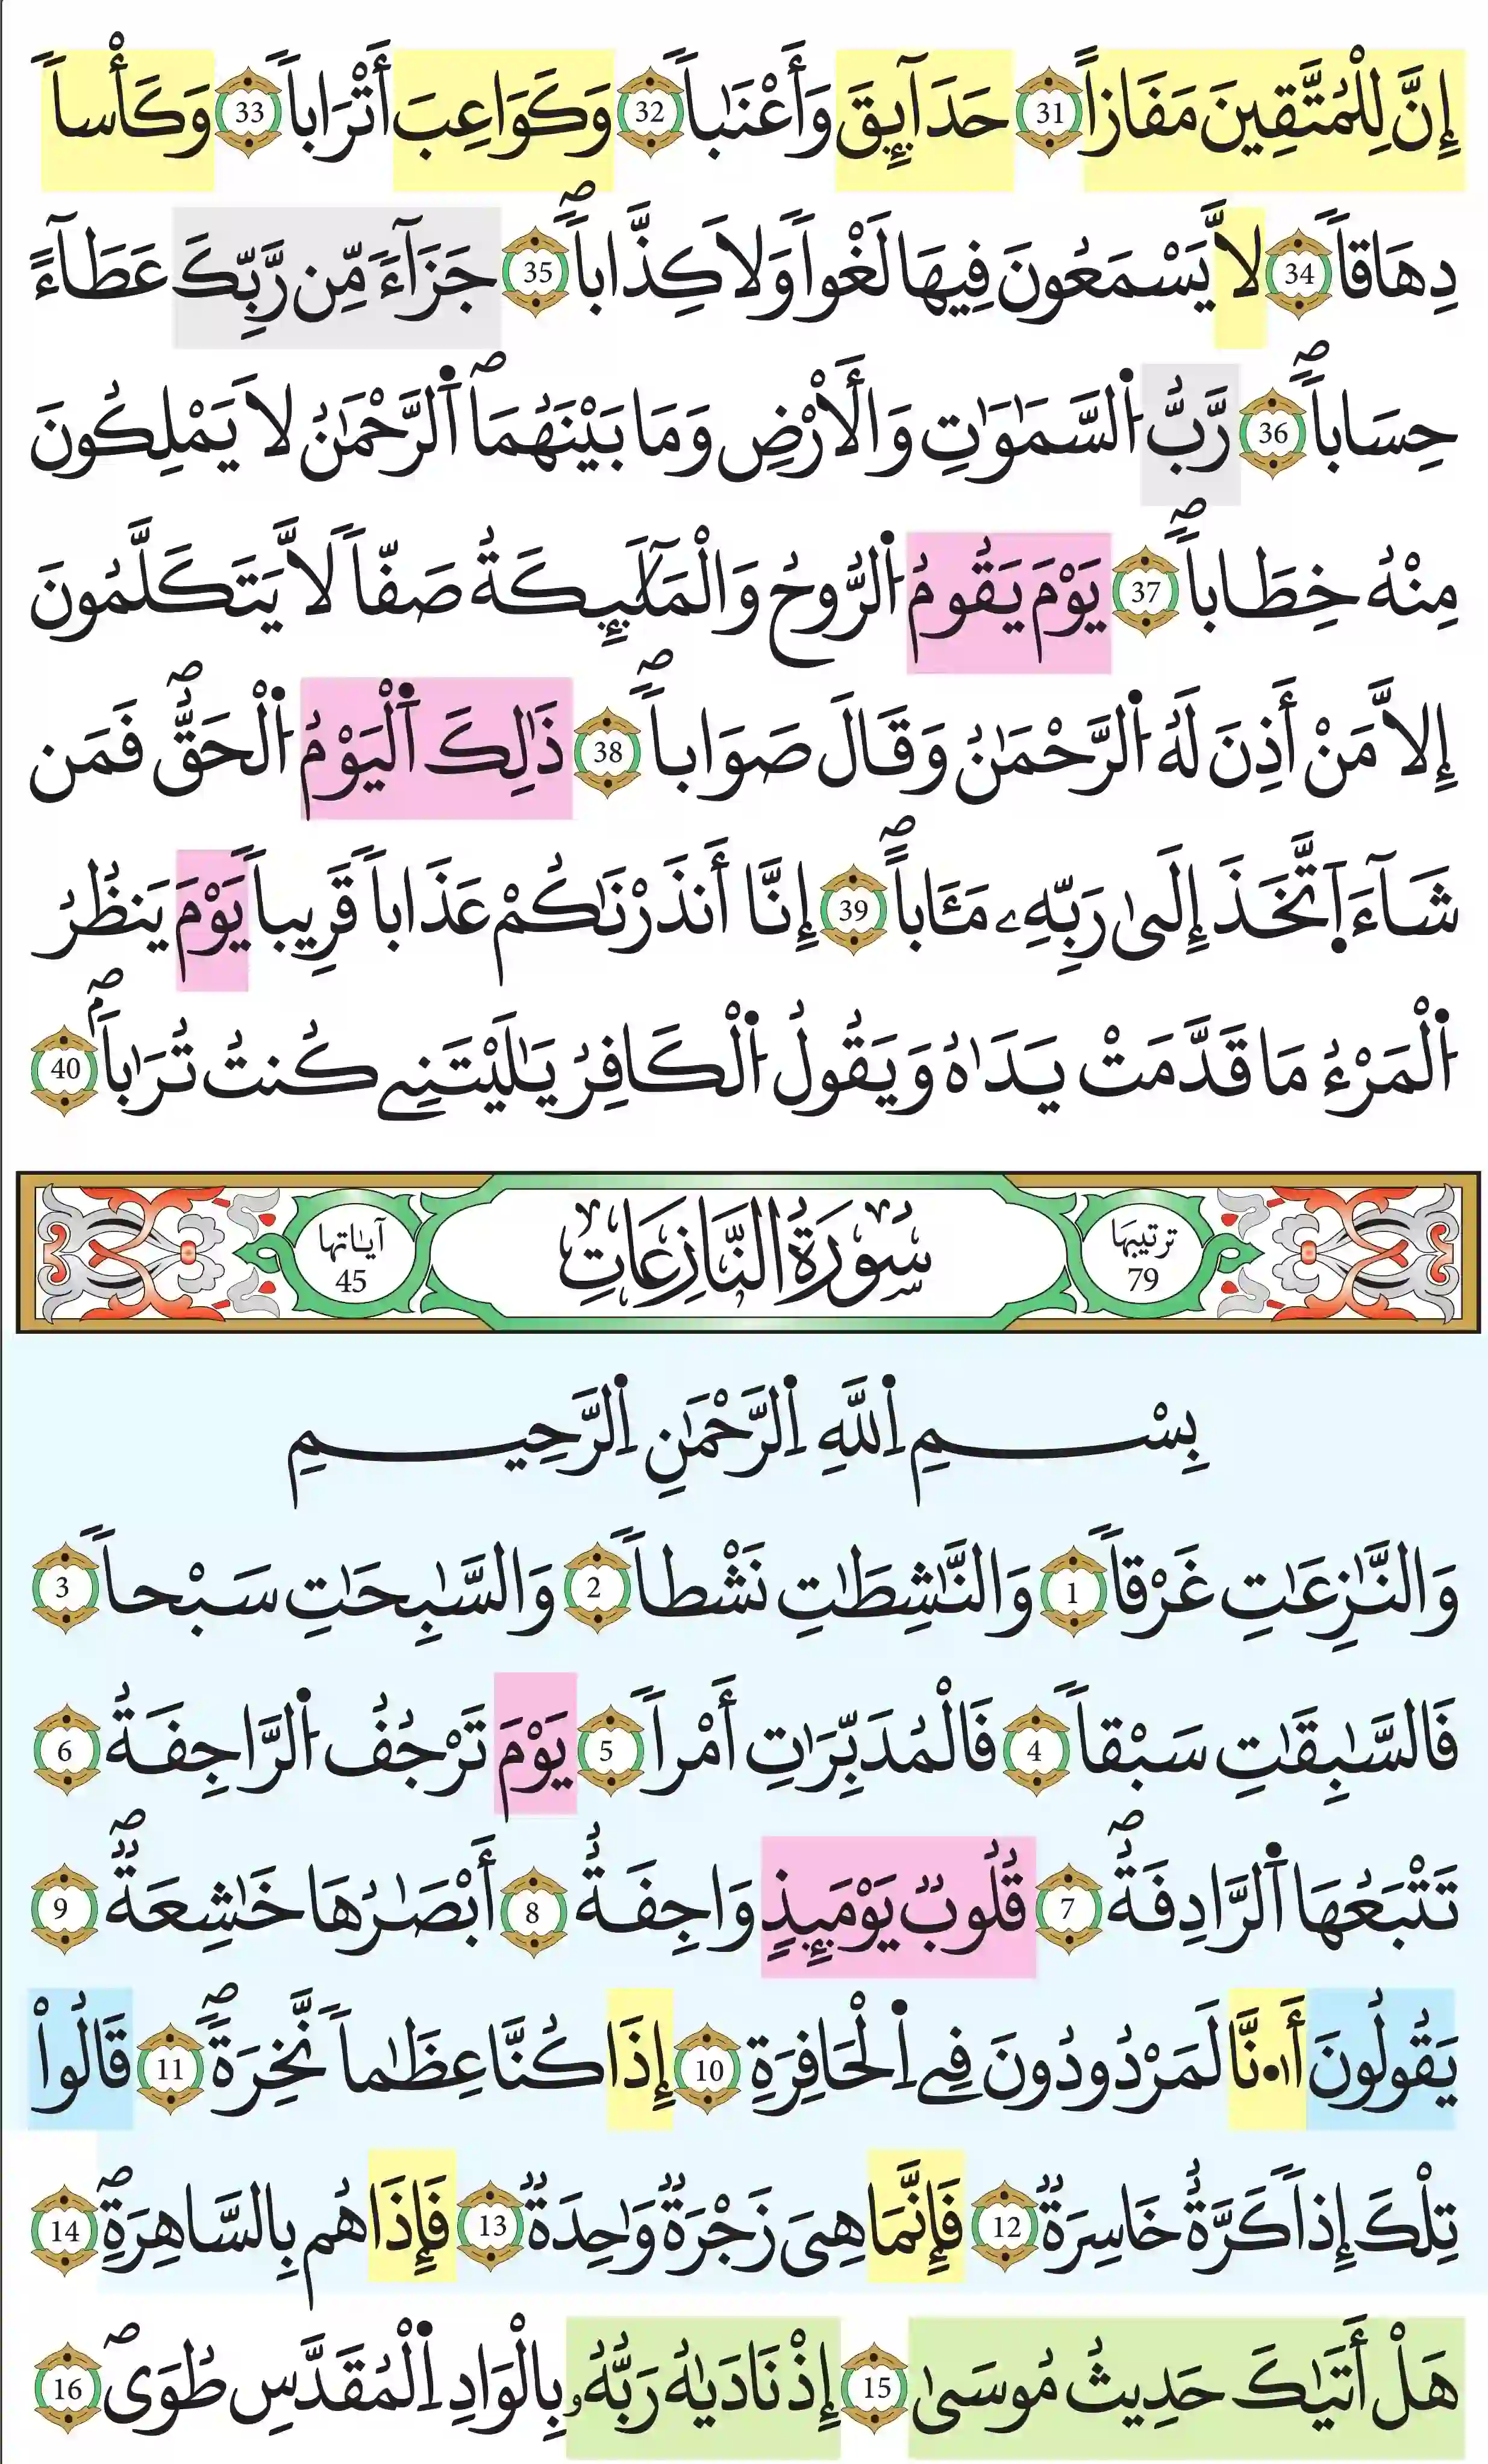 إِنَّ لِلْمُتَّقِينَ مَفَازاً 31 حَدَآئِقَ وَأَعْنَٰباً 32 وَكَوَاعِبَ أَتْرَاباً 33 وَكَأْساً
دِهَاقاً 34 لاَّ يَسْمَعُونَ فِيهَا لَغْواً وَلاَ كِذَّاباًۖ 35 جَزَآءً مِّن رَّبِّكَ عَطَآءً
حِسَاباًۖ 36 رَّبُّ اُ۬لسَّمَٰوَٰتِ وَالْأَرْضِ وَمَا بَيْنَهُمَاۖ اَ۬لرَّحْمَٰنُ لاَ يَمْلِكُونَ
مِنْهُ خِطَاباًۖ 37 يَوْمَ يَقُومُ اُ۬لرُّوحُ وَالْمَلَٰٓئِكَةُ صَفّاً لاَّ يَتَكَلَّمُونَ
إِلاَّ مَنْ أَذِنَ لَهُ اُ۬لرَّحْمَٰنُ وَقَالَ صَوَاباًۖ 38 ذَٰلِكَ اَ۬لْيَوْمُ اُ۬لْحَقُّۖ فَمَن
شَآءَ اَ۪تَّخَذَ إِلَىٰ رَبِّهِۦ مَـَٔاباًۖ 39 إِنَّا أَنذَرْنَٰكُمْ عَذَاباً قَرِيباً يَوْمَ يَنظُرُ
اُ۬لْمَرْءُ مَا قَدَّمَتْ يَدَاهُ وَيَقُولُ اُ۬لْكَافِرُ يَٰلَيْتَنِے كُنتُ تُرَٰباۢۖ 40
ترتيبها 79 سُورَةُ النَّازِعَاتِ آياتها 45
بِسْمِ اِ۬للَّهِ اِ۬لرَّحْمَٰنِ اِ۬لرَّحِيمِ
وَالنَّٰزِعَٰتِ غَرْقاً 1 وَالنَّٰشِطَٰتِ نَشْطاً 2 وَالسَّٰبِحَٰتِ سَبْحاً 3
فَالسَّٰبِقَٰتِ سَبْقاً 4 فَالْمُدَبِّرَٰتِ أَمْراً 5 يَوْمَ تَرْجُفُ اُ۬لرَّاجِفَةُ 6
تَتْبَعُهَا اَ۬لرَّادِفَةُۖ 7 قُلُوبٌ يَوْمَئِذٍ وَاجِفَةٌ 8 أَبْصَٰرُهَا خَٰشِعَةٌۖ 9
يَقُولُونَ أَ۟نَّا لَمَرْدُودُونَ فِے اِ۬لْحَافِرَةِ 10 إِذَا كُنَّا عِظَٰماً نَّخِرَةًۖ 11 قَالُواْ
تِلْكَ إِذاً كَرَّةٌ خَاسِرَةٌ 12 فَإِنَّمَا هِيَ زَجْرَةٌ وَٰحِدَةٌ 13 فَإِذَا هُم بِالسَّاهِرَةِۖ 14
هَلْ أَتَيٰكَ حَدِيثُ مُوسَىٰ 15 إِذْ نَادَيٰهُ رَبُّهُۥ بِالْوَادِ اِ۬لْمُقَدَّسِ طُوَىۖ 16